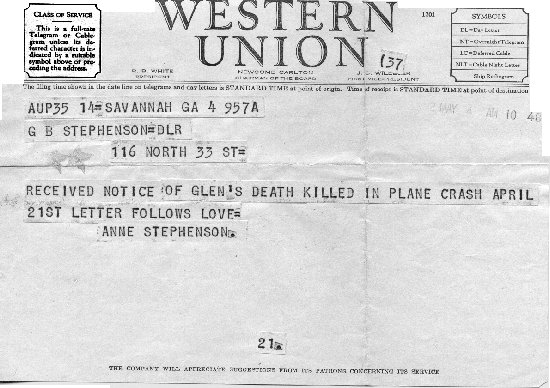 CLASS OF SERVICE
This is a full-rate
Telegram or Cable-
gram unless its de-
ferred character is in-
dicated by a suitable
symbol above or pre-
ceding the address.
WESTERN
UNION
1201
(37)
SYMBOLS
DL=Day Letter
NT=Overnight Telegram
LC=Deferred Cable
NLT=Cable Night Letter
Ship Radiogram
R. B. WHITE
PRESIDENT
NEWCOMB CARLTON
CHAIRMAN OF THE BOARD
J. C. WILLEVER
FIRST VICE-PRESIDENT
The filing time shown in the date line on telegrams and day letters is STANDARD TIME at point of origin. Time of receipt is STANDARD TIME at point of destination
AUP35 14=SAVANNAH GA 4 957A
MAY 4 AM 10 48
G B STEPHENSON=DLR
116 NORTH 33 ST=
RECEIVED NOTICE OF GLEN'S DEATH KILLED IN PLANE CRASH APRIL
21ST LETTER FOLLOWS LOVE=
ANNE STEPHENSON.
21.
THE COMPANY WILL APPRECIATE SUGGESTIONS FROM ITS PATRONS CONCERNING ITS SERVICE